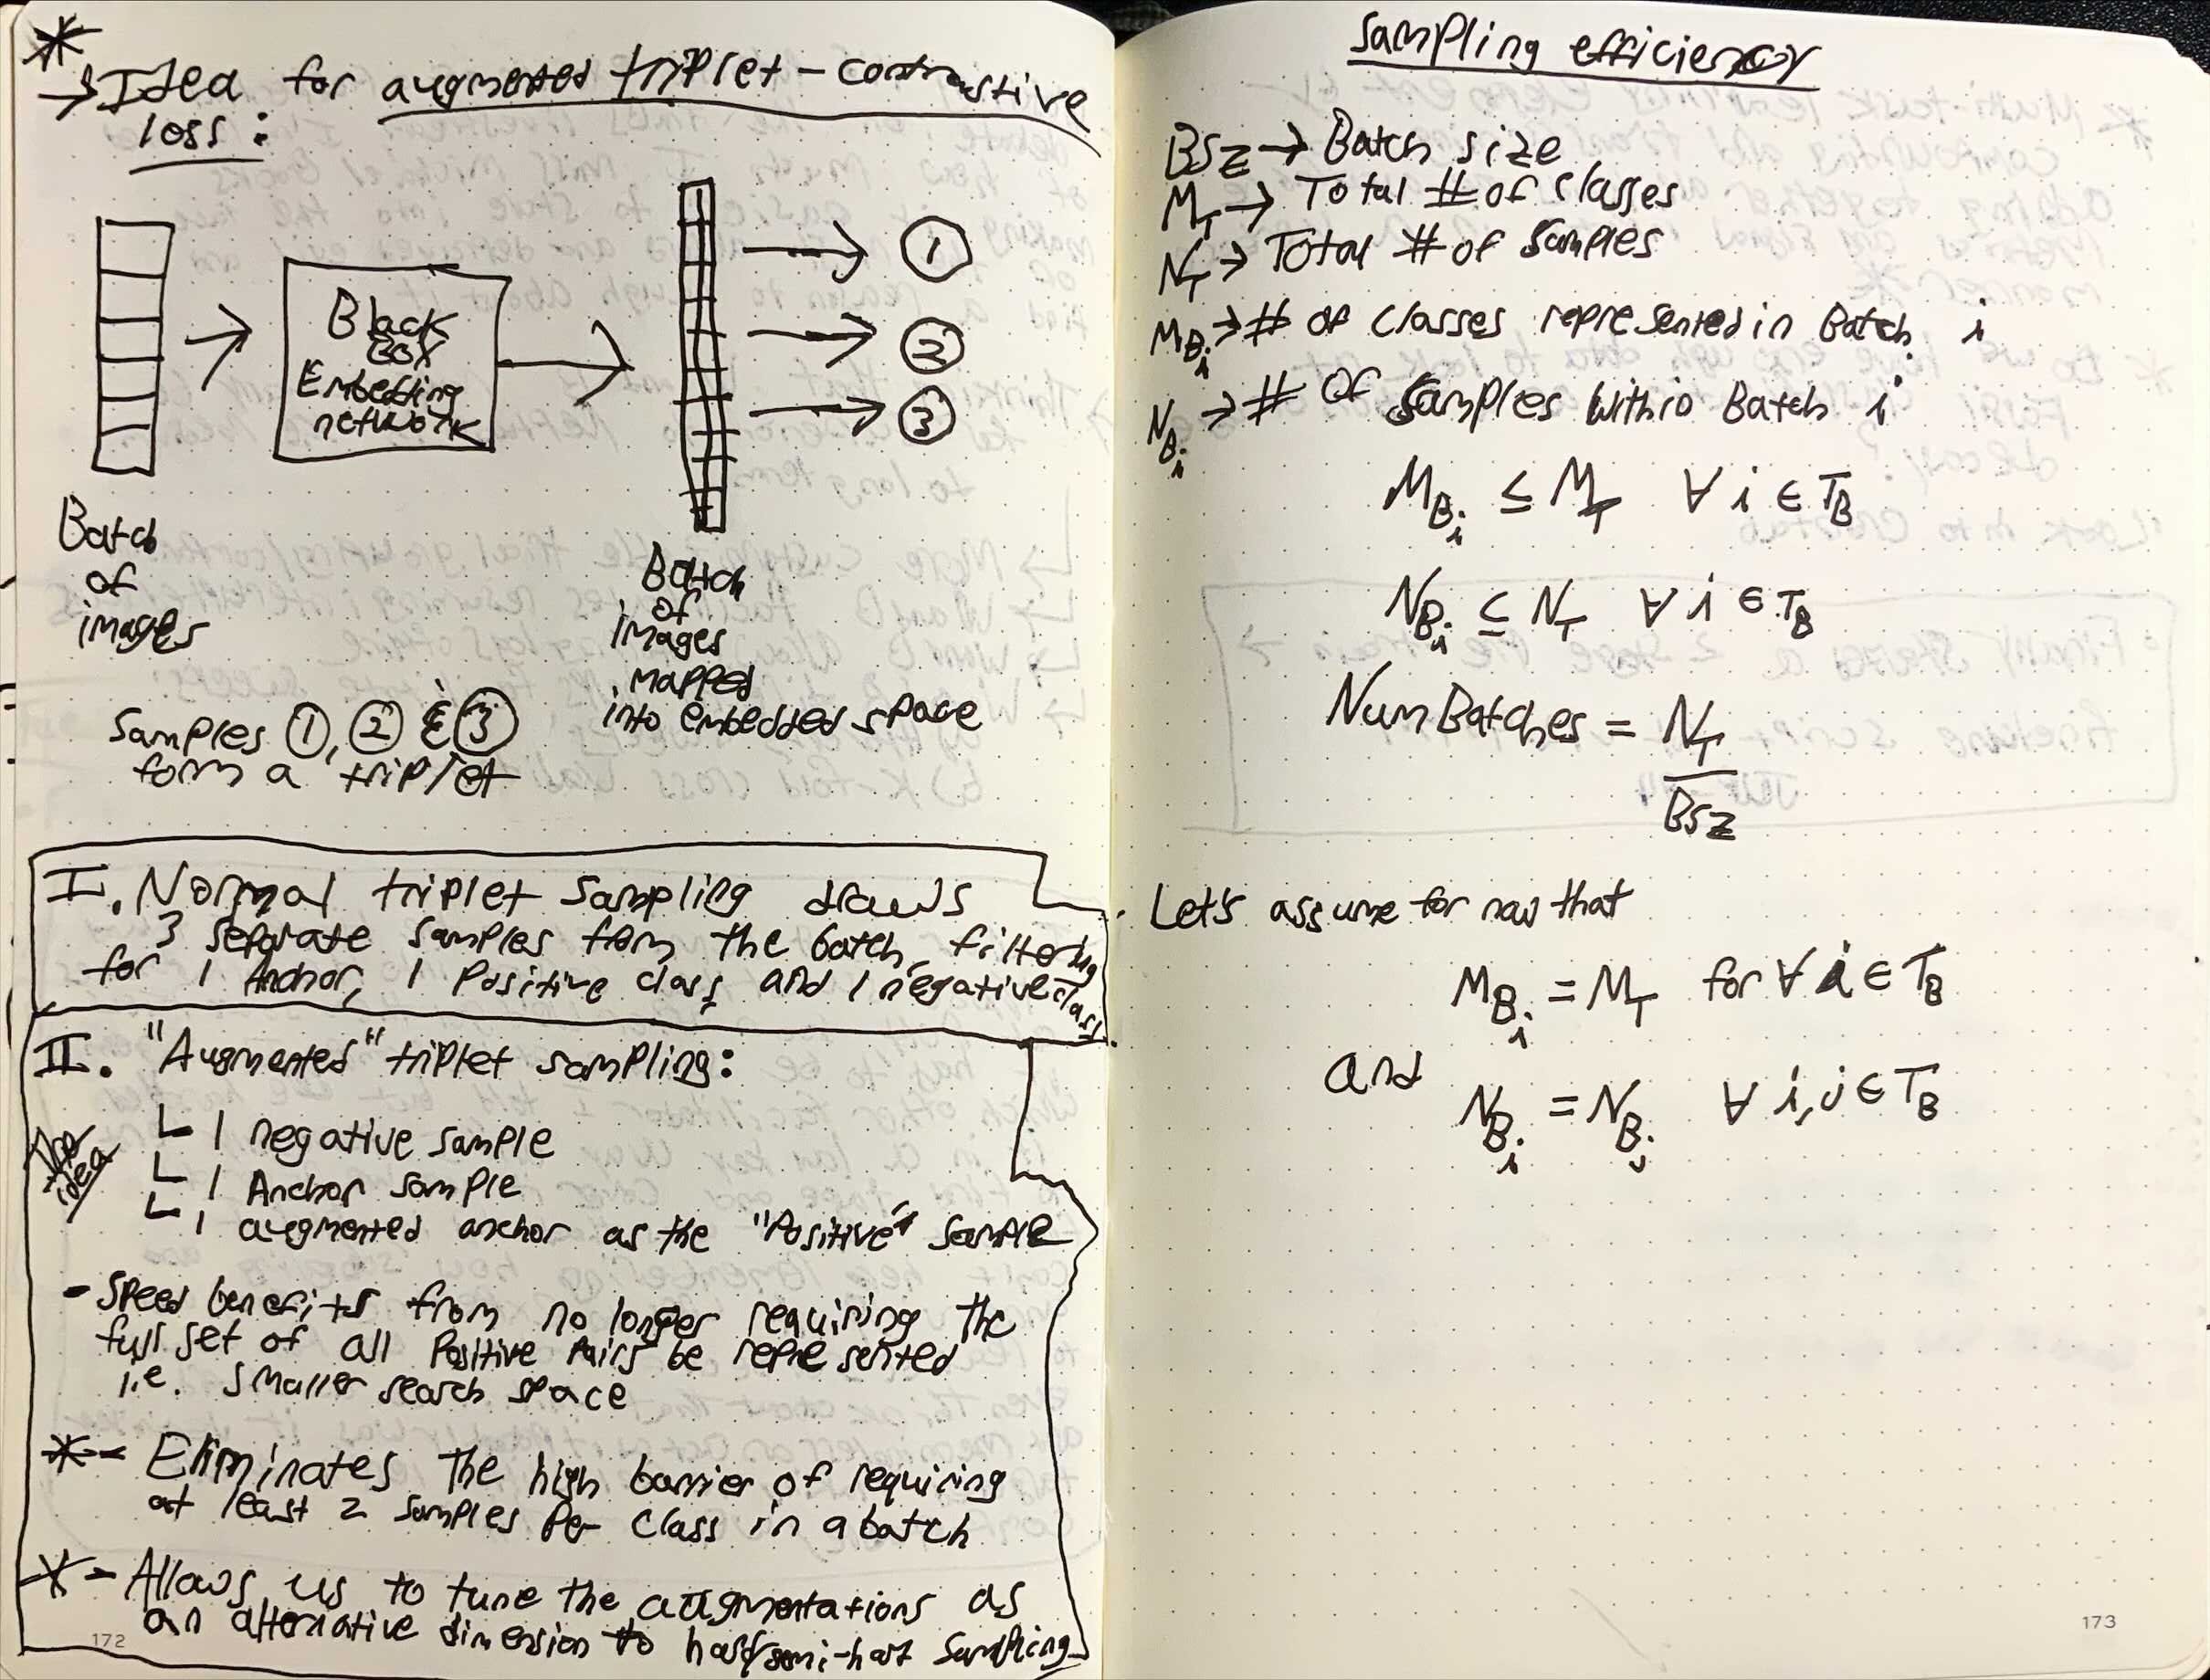 * → Idea for augmented triplet-contrastive
loss:
Black
Box
Embedding
network
1
2
3
Batch
of
images
Batch
of
images
mapped
into embedded space
Samples 1, 2 & 3
form a triplet
I. Normal triplet sampling draws
3 separate samples from the batch, filtering
for 1 Anchor, 1 Positive class and 1 negative class.
II. "Augmented" triplet sampling:
The idea
1 negative sample
1 Anchor sample
1 augmented anchor as the "Positive" sample
- Speed benefits from no longer requiring the
full set of all Positive Pairs be represented
i.e. smaller search space
* - Eliminates the high barrier of requiring
at least 2 samples per class in a batch
* - Allows us to tune the augmentations as
an alternative dimension to hard/semi-hard sampling
172
Sampling efficiency
BSZ → Batch size
M_T → Total # of classes
N_T → Total # of samples
M_{B_i} → # of classes represented in Batch i
N_{B_i} → # of samples within Batch i
M_{B_i} ≤ M_T ∀ i ∈ T_B
N_{B_i} ≤ N_T ∀ i ∈ T_B
NumBatches = N_T / BSZ
Let's assume for now that
M_{B_i} = M_T for ∀ i ∈ T_B
and N_{B_i} = N_{B_j} ∀ i, j ∈ T_B
173